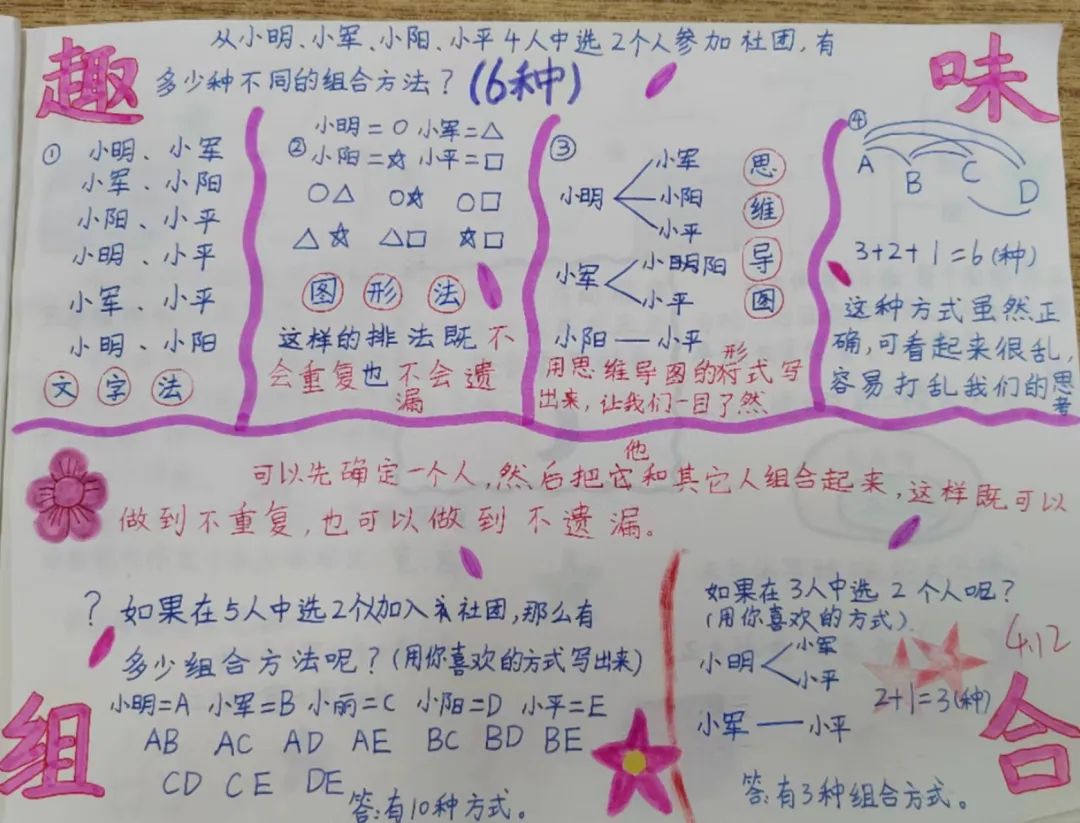 趣味
从小明、小军、小阳、小平4人中选2个人参加社团,有
多少种不同的组合方法?(6种)
①
小明、小军
小军、小阳
小阳、小平
小明、小平
小军、小平
小明、小阳
文字法
②
小明=○ 小军=△
小阳=☆ 小平=□
○△ ○☆ ○□
△☆ △□ ☆□
图形法
这样的排法既不
会重复也不会遗
漏
③
小明
小军
小阳
小平
小军
小阳
小平
小阳——小平
思维导图
用思维导图的形式写
出来,让我们一目了然
④
A B C D
3+2+1=6(种)
这种方式虽然正
确,可看起来很乱,
容易打乱我们的思
考
可以先确定一个人,然后把他和其它人组合起来,这样既可以
做到不重复,也可以做到不遗漏。
?如果在5人中选2个加入社团,那么有
多少组合方法呢?(用你喜欢的方式写出来)
小明=A 小军=B 小丽=C 小阳=D 小平=E
AB AC AD AE BC BD BE
CD CE DE
答:有10种方式。
如果在3人中选2个人呢?
(用你喜欢的方式)
小明
小军
小平
小军——小平
2+1=3(种)
答:有3种组合方式。
4.12
组合